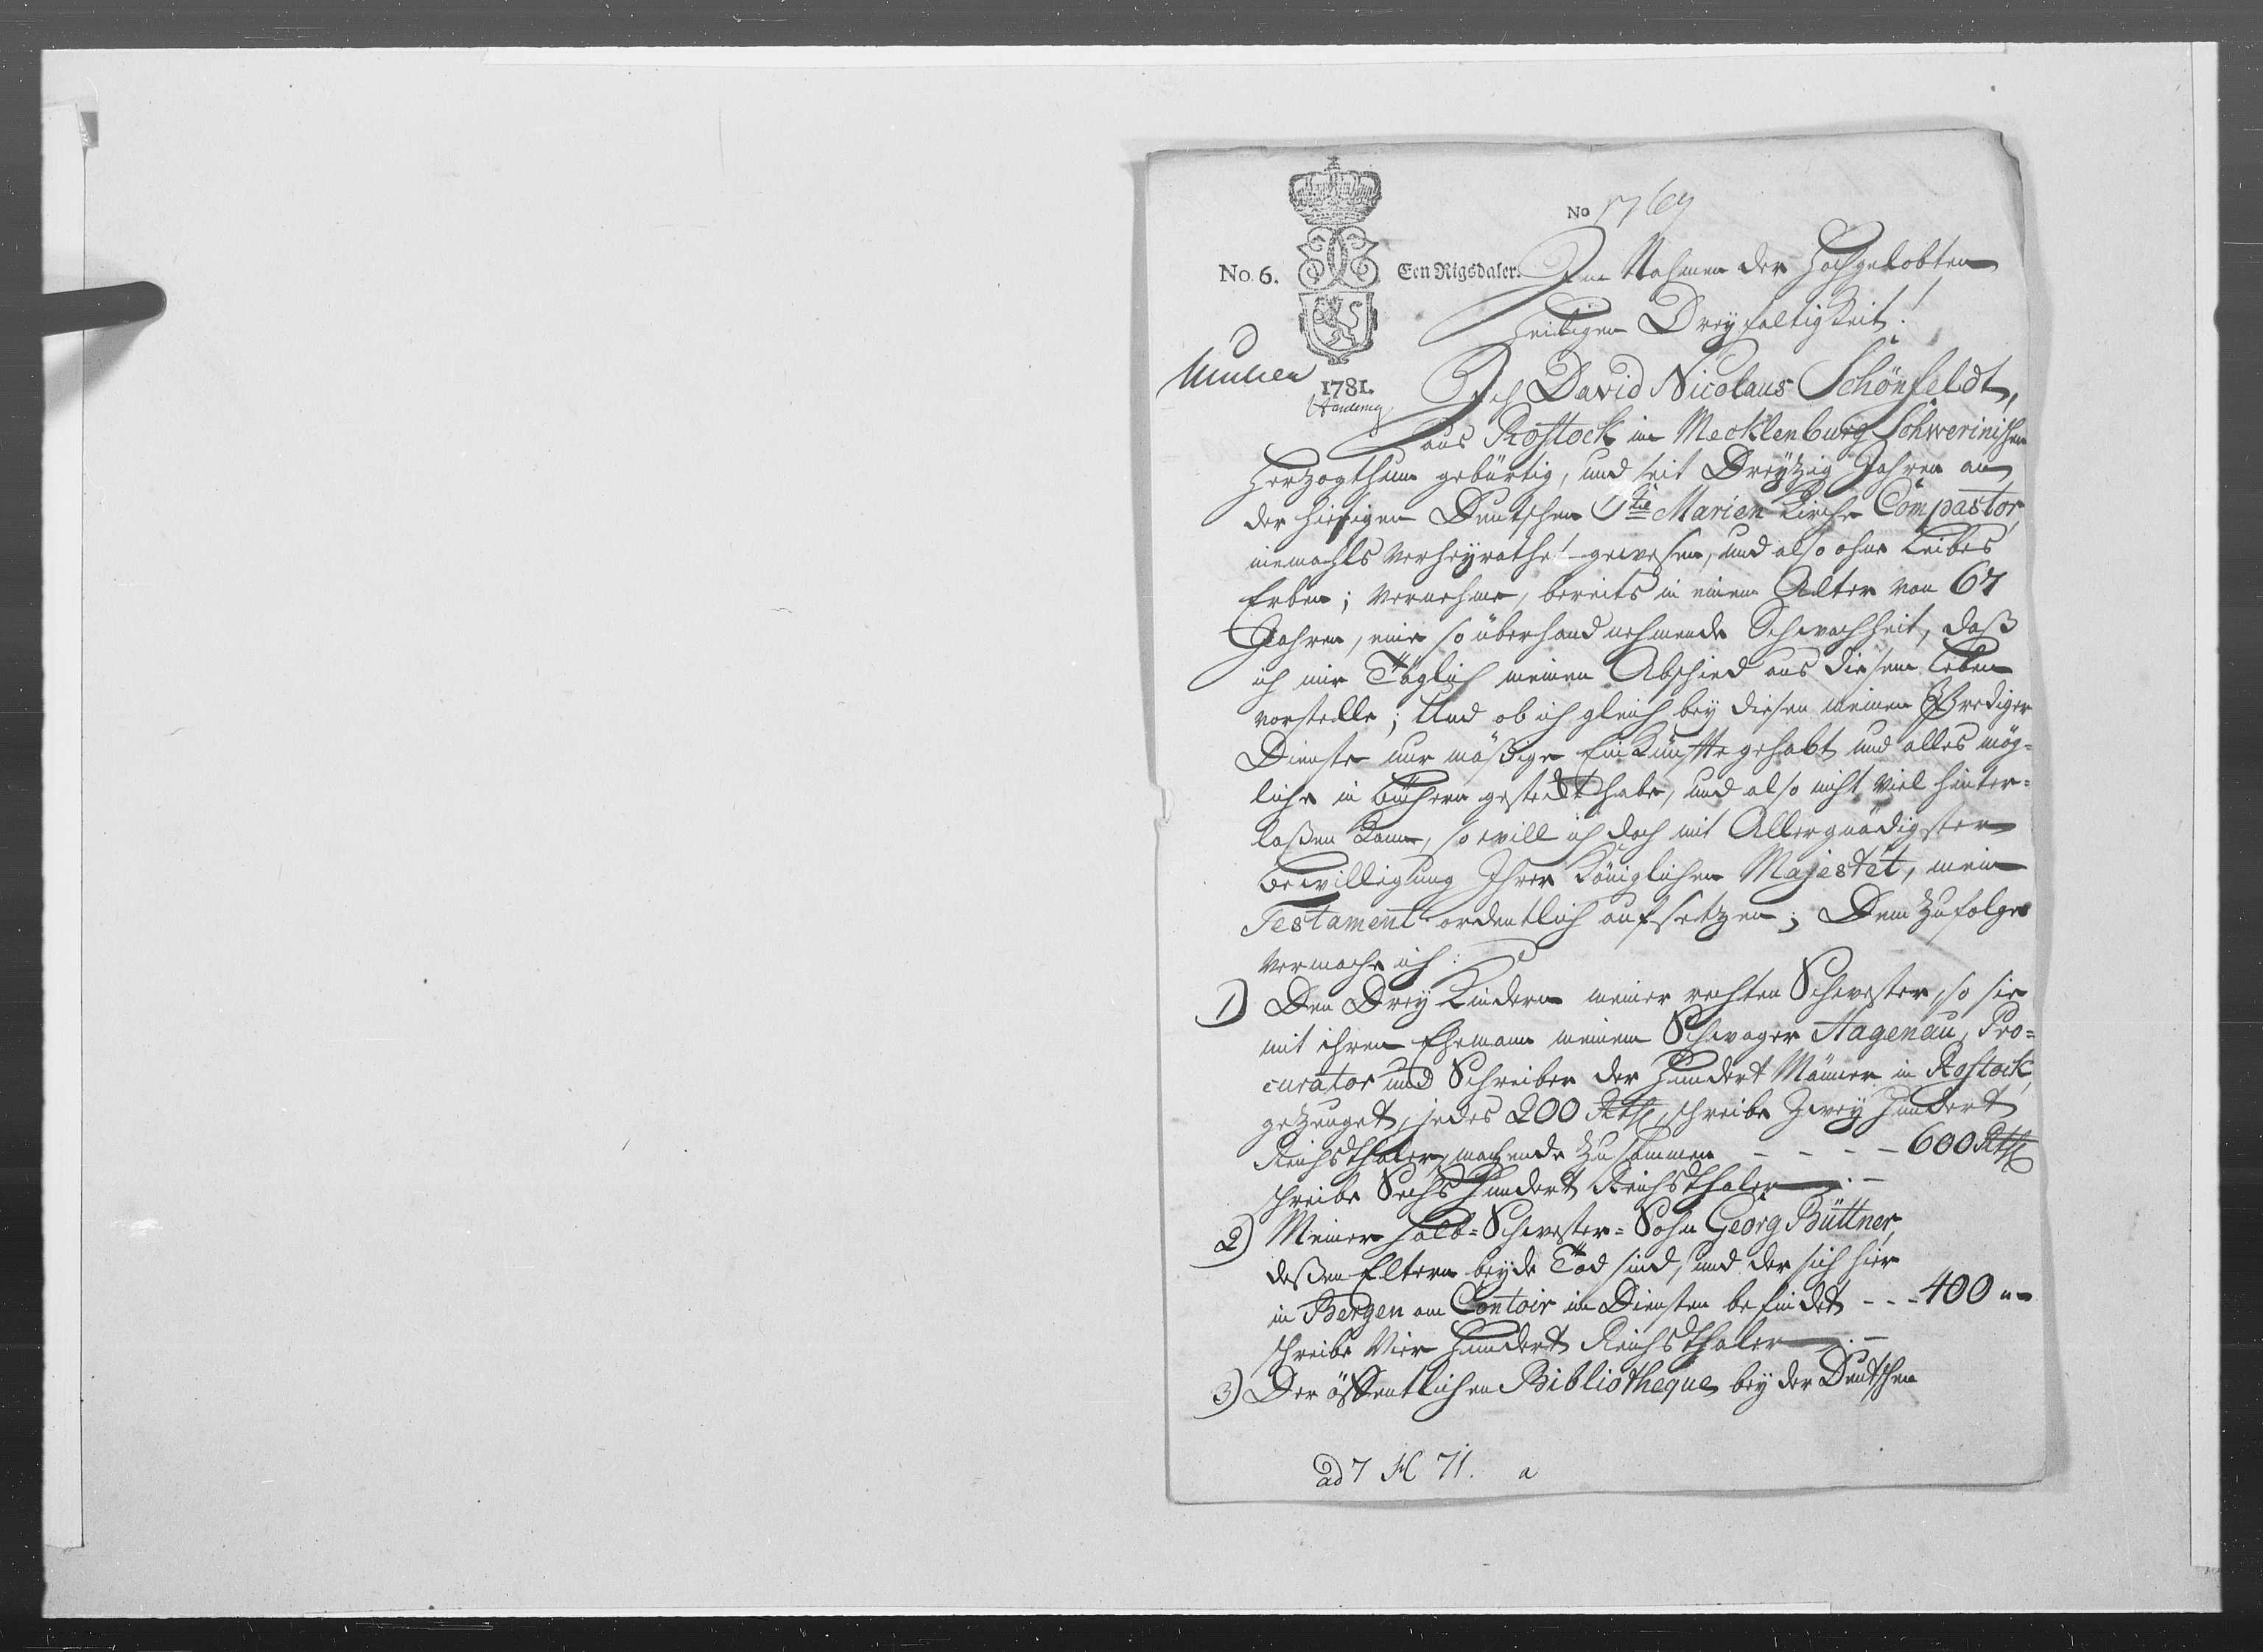 No 1769
No. 6.
Een Rigsdaler.
1781.
Im Nahmen der Hochgelobten
Heiligen Dreyfaltigkeit!
Ich David Nicolaus Schönfeldt,
aus Rostock im Mecklenburg Schwerinischen
Herzogthum gebürtig, und seit Dreÿtzig Jahren an
der hiesigen Deutschen Stæ Marien Kirche Compastor,
niemahls verheÿrathet gewesen, und also ohne Leibes
Erben; vernehme, bereits in einem Alter von 67
Jahren, eine so überhand nehmende Schwachheit, daß
ich mir Täglich meinen Abschied aus diesem Leben
vorstelle; Und ob ich gleich beÿ diesen meinen Prediger
Dienste nur mäßige Einkünfte gehabt und alles mög=
liche in Büchern gesteckt habe, und also nicht viel hinter=
laßen kann, so will ich doch mit Allergnädigster
Bewilligung Ihrer Königlichen Majestét, mein
Testament ordentlich aufsetzen; Dem zufolge
vermache ich:
1) Den Dreÿ Kindern meiner rechten Schwester, so sie
mit ihren Ehemann meinem Schwager Hagenau, Pro=
curator und Schreiber der Hundert Männer in Rostock,
gezeuget, jedes 200 Rthl, schreibe Zweÿ Hundert
Reichsthaler, machende zusammen - - - - 600 Rthl
schreibe Sechs Hundert Reichsthaler.-
2) Meiner Halb=Schwester=Sohn Georg Büttner,
deßen Eltern beÿde Tod sind, und der sich hier
in Bergen am Contoir in Diensten befindet - - - 400 "-
schreibe Vier Hundert Reichsthaler.-
3) Der öffentlichen Bibliotheque beÿ der Deutschen
ad 7 H 71. a